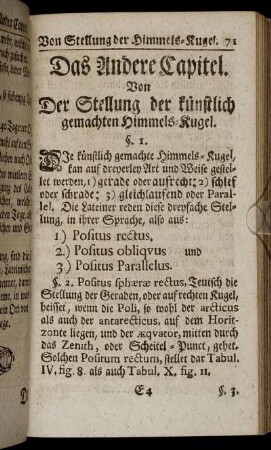 Von Stellung der Himmels-Kugel. 71
Das Andere Capitel.
Von
Der Stellung der künstlich
gemachten Himmels-Kugel.
§. 1.
DIe künstlich gemachte Himmels-Kugel,
kan auf dreyerley Art und Weise gestel-
let werden, 1) gerade oder aufrecht; 2) schief
oder schrade; 3) gleichlaufend oder Paral-
lel. Die Lateiner reden diese dreyfache Stel-
lung, in ihrer Sprache, also aus:
1) Positus rectus,
2.) Positus obliqvus und
3) Positus Parallelus.
§. 2. Positus sphæræ rectus, Teutsch die
Stellung der Geraden, oder auf rechten Kugel,
heisset, wenn die Poli, so wohl der arcticus
als auch der antarcticus, auf dem Hori-
zonte liegen, und der æqvator, mitten durch
das Zenith, oder Scheitel-Punct, gehet.
Solchen Positum rectum, stellet dar Tabul.
IV, fig. 8. als auch Tabul. X. fig. 11.
E 4 §. 3.